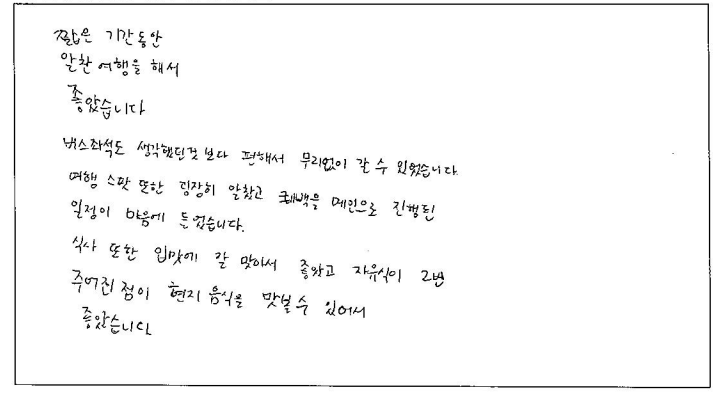 짧은 기간동안
알찬 여행을 해서
좋았습니다
버스좌석도 생각했던것 보다 편해서 무리없이 갈 수 있었습니다.
여행 스팟 또한 굉장히 알찼고 퀘백을 메인으로 진행된
일정이 마음에 들었습니다.
식사 또한 입맛에 잘 맞아서 좋았고 자유식이 2번
주어진 점이 현지 음식을 맛볼 수 있어서
좋았습니다